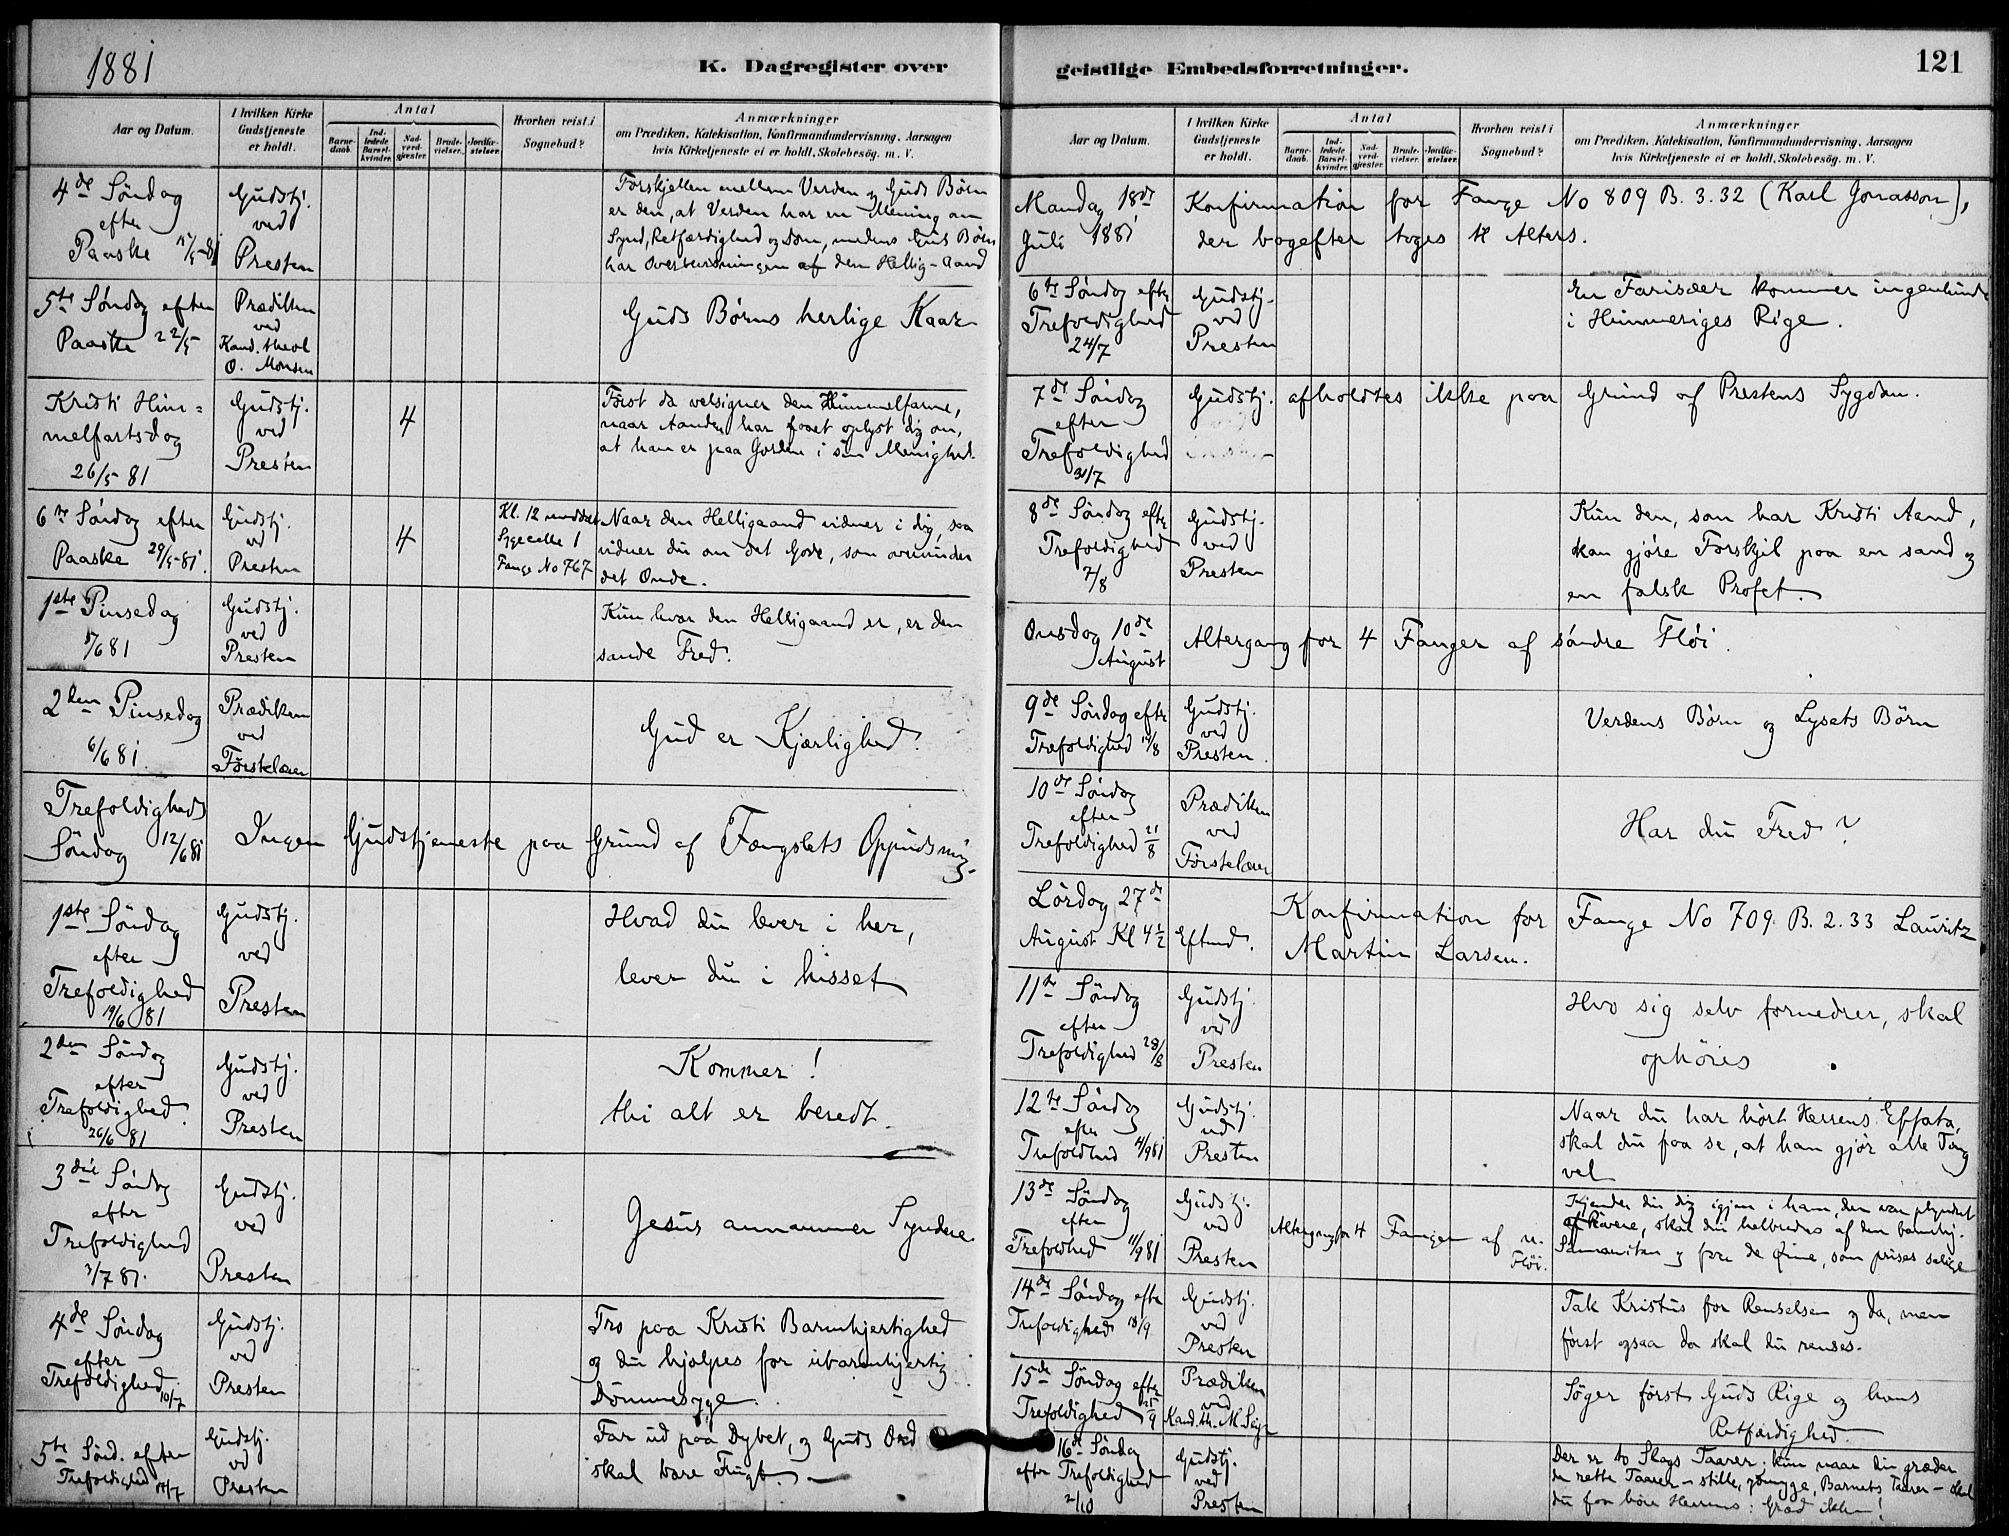 1881
K. Dagregister over
Aar og Datum.
I hvilken Kirke
Gudstjeneste
er holdt.
Antal
Barne-
daab.
Ind-
ledede
Barsel-
kvinder.
Nad-
verd-
gjæster.
Brude-
vielser.
Jordfæ-
stelser.
Hvorhen reist i
Sognebud?
Anmærkninger
om Prædiken, Katekisation, Konfirmandundervisning, Aarsagen
hvis Kirketjeneste ei er holdt, Skolebesög. m. V.
4de Søndag
efter
Paaske 15/5-81
Gudstj.
ved
Presten
Forskjellen mellem Verden og Guds Børn
er den, at Verden har en Mening om
Synd, Retfærdighed og Dom, medens Guds Børn
har Overbevisningen af den Hellig-Aand
5te Søndag efter
Paaske 22/5
Prædiken
ved
Kand. theol
O. Monsen
Guds Børns herlige Kaar
Kristi Him=
melfartsdag
26/5 81
Gudstj.
ved
Presten
4
Først da velsigner den Himmelfarne,
naar Aanden har faaet oplyst dig om,
at han er paa Jorden i sin Menighed.
6te Søndag efter
Paaske 29/5-81.
Gudstj.
ved
Presten
4
Kl. 12 middag
Sygecelle 1
Fange No 767
Naar den Helligaand vidner i dig, saa
vidner du om det Gode, som overvinder
det Onde.
1ste Pinsedag
5/6 81
Gudstj.
ved
Presten
Kun hvor den Helligaand er, er den
sande Fred.
2den Pinsedag
6/6 81.
Prædiken
ved
Førstelærer
Gud er Kjærlighed.
Trefoldigheds
Søndag 12/6 81
Ingen Gudstjeneste paa Grund af Fængslets Oppudsning.
1ste Søndag
efter
Trefoldighed
19/6 81
Gudstj.
ved
Presten
Hvad du lever i her,
lever du i hisset
2den Søndag
efter
Trefoldighed
26/6 81
Gudstj.
ved
Presten
Kommer!
thi alt er beredt.
3die Søndag
efter
Trefoldighed
3/7 81.
Gudstj.
ved
Presten
Jesus annammer Syndere.
4de Søndag
efter
Trefoldighed 10/7
Gudstj.
ved
Presten
Tro paa Kristi Barmhjertighed
og du hjælpes for ubarmhjertig
Dømmesyge.
5te Sønd. efter
Trefoldighed 17/7
Gudstj.
ved
Presten
Far ud paa Dybet, og Guds Ord
skal bære Frugt.
geistlige Embedsforretninger.
121
Aar og Datum.
I hvilken Kirke
Gudstjeneste
er holdt.
Antal
Barne-
daab.
Ind-
ledede
Barsel-
kvinder.
Nad-
verd-
gjæster.
Brude-
vielser.
Jordfæ-
stelser.
Hvorhen reist i
Sognebud?
Anmærkninger
om Prædiken, Katekisation, Konfirmandundervisning, Aarsagen
hvis Kirketjeneste ei er holdt, Skolebesög. m. V.
Mandag 18de
Juli 1881
Konfirmation for Fange No 809 B. 3.32 (Karl Jonasson),
der bagefter toges til Alters.
6te Søndag efter
Trefoldighed
24/7
Gudstj.
ved
Presten
En Farisæer kommer ingenlunde
i Himmeriges Rige.
7de Søndag
efter
Trefoldighed
31/7
Gudstj. afholdtes ikke paa Grund af Prestens Sygdom.
8de Søndag efter
Trefoldighed
7/8
Gudstj.
ved
Presten
Kun den, som har Kristi Aand,
kan gjøre Forskjel paa en sand og
en falsk Profet.
Onsdag 10de
August
Altergang for 4 Fanger af søndre Fløi.
9de Søndag efter
Trefoldighed 14/8
Gudstj.
ved
Presten
Verdens Børn og Lysets Børn
10de Søndag
efter
Trefoldighed 21/8
Prædiken
ved
Førstelærer
Har du Fred?
Lørdag 27de
August Kl 4 1/2
Eftmd.
Konfirmation for Fange No 709. B. 2.33 Lauritz
Martin Larsen.
11te Søndag
efter
Trefoldighed 28/8
Gudstj.
ved
Presten
Hvo sig selv fornedrer, skal
ophøies
12te Søndag
efter
Trefoldhed 4/9 81
Gudstj.
ved
Presten
Naar du har hørt Herrens Effata,
skal du faa se, at han gjør alle Ting
vel
13de Søndag
efter
Trefoldhed 11/9 81
Gudstj.
ved
Presten
Altergang for 4 Fanger af n.
Fløi.
Kjender du dig igjen i ham, den var plyndret
af Røvere, skal du helbredes af den barmhj.
Samaritan og faa de Øine, som prises salige
14de Søndag efter
Trefoldighed 18/9
Gudstj.
ved
Presten
Tak Kristus for Renselsen og da, men
først ogsaa da skal du renses.
15de Søndag efter
Trefoldighed 25/9
Prædiken
ved
Kand. th. M.
Søger først Guds Rige og hans
Retfærdighed.
16de Søndag
efter Trefoldighed
2/10
Gudstj.
ved
Presten
Der er to Slags Taarer; kun naar du græder
de rette Taarer – stille, Barnets Taarer – skal
du faa høre Herrens: Græd ikke!